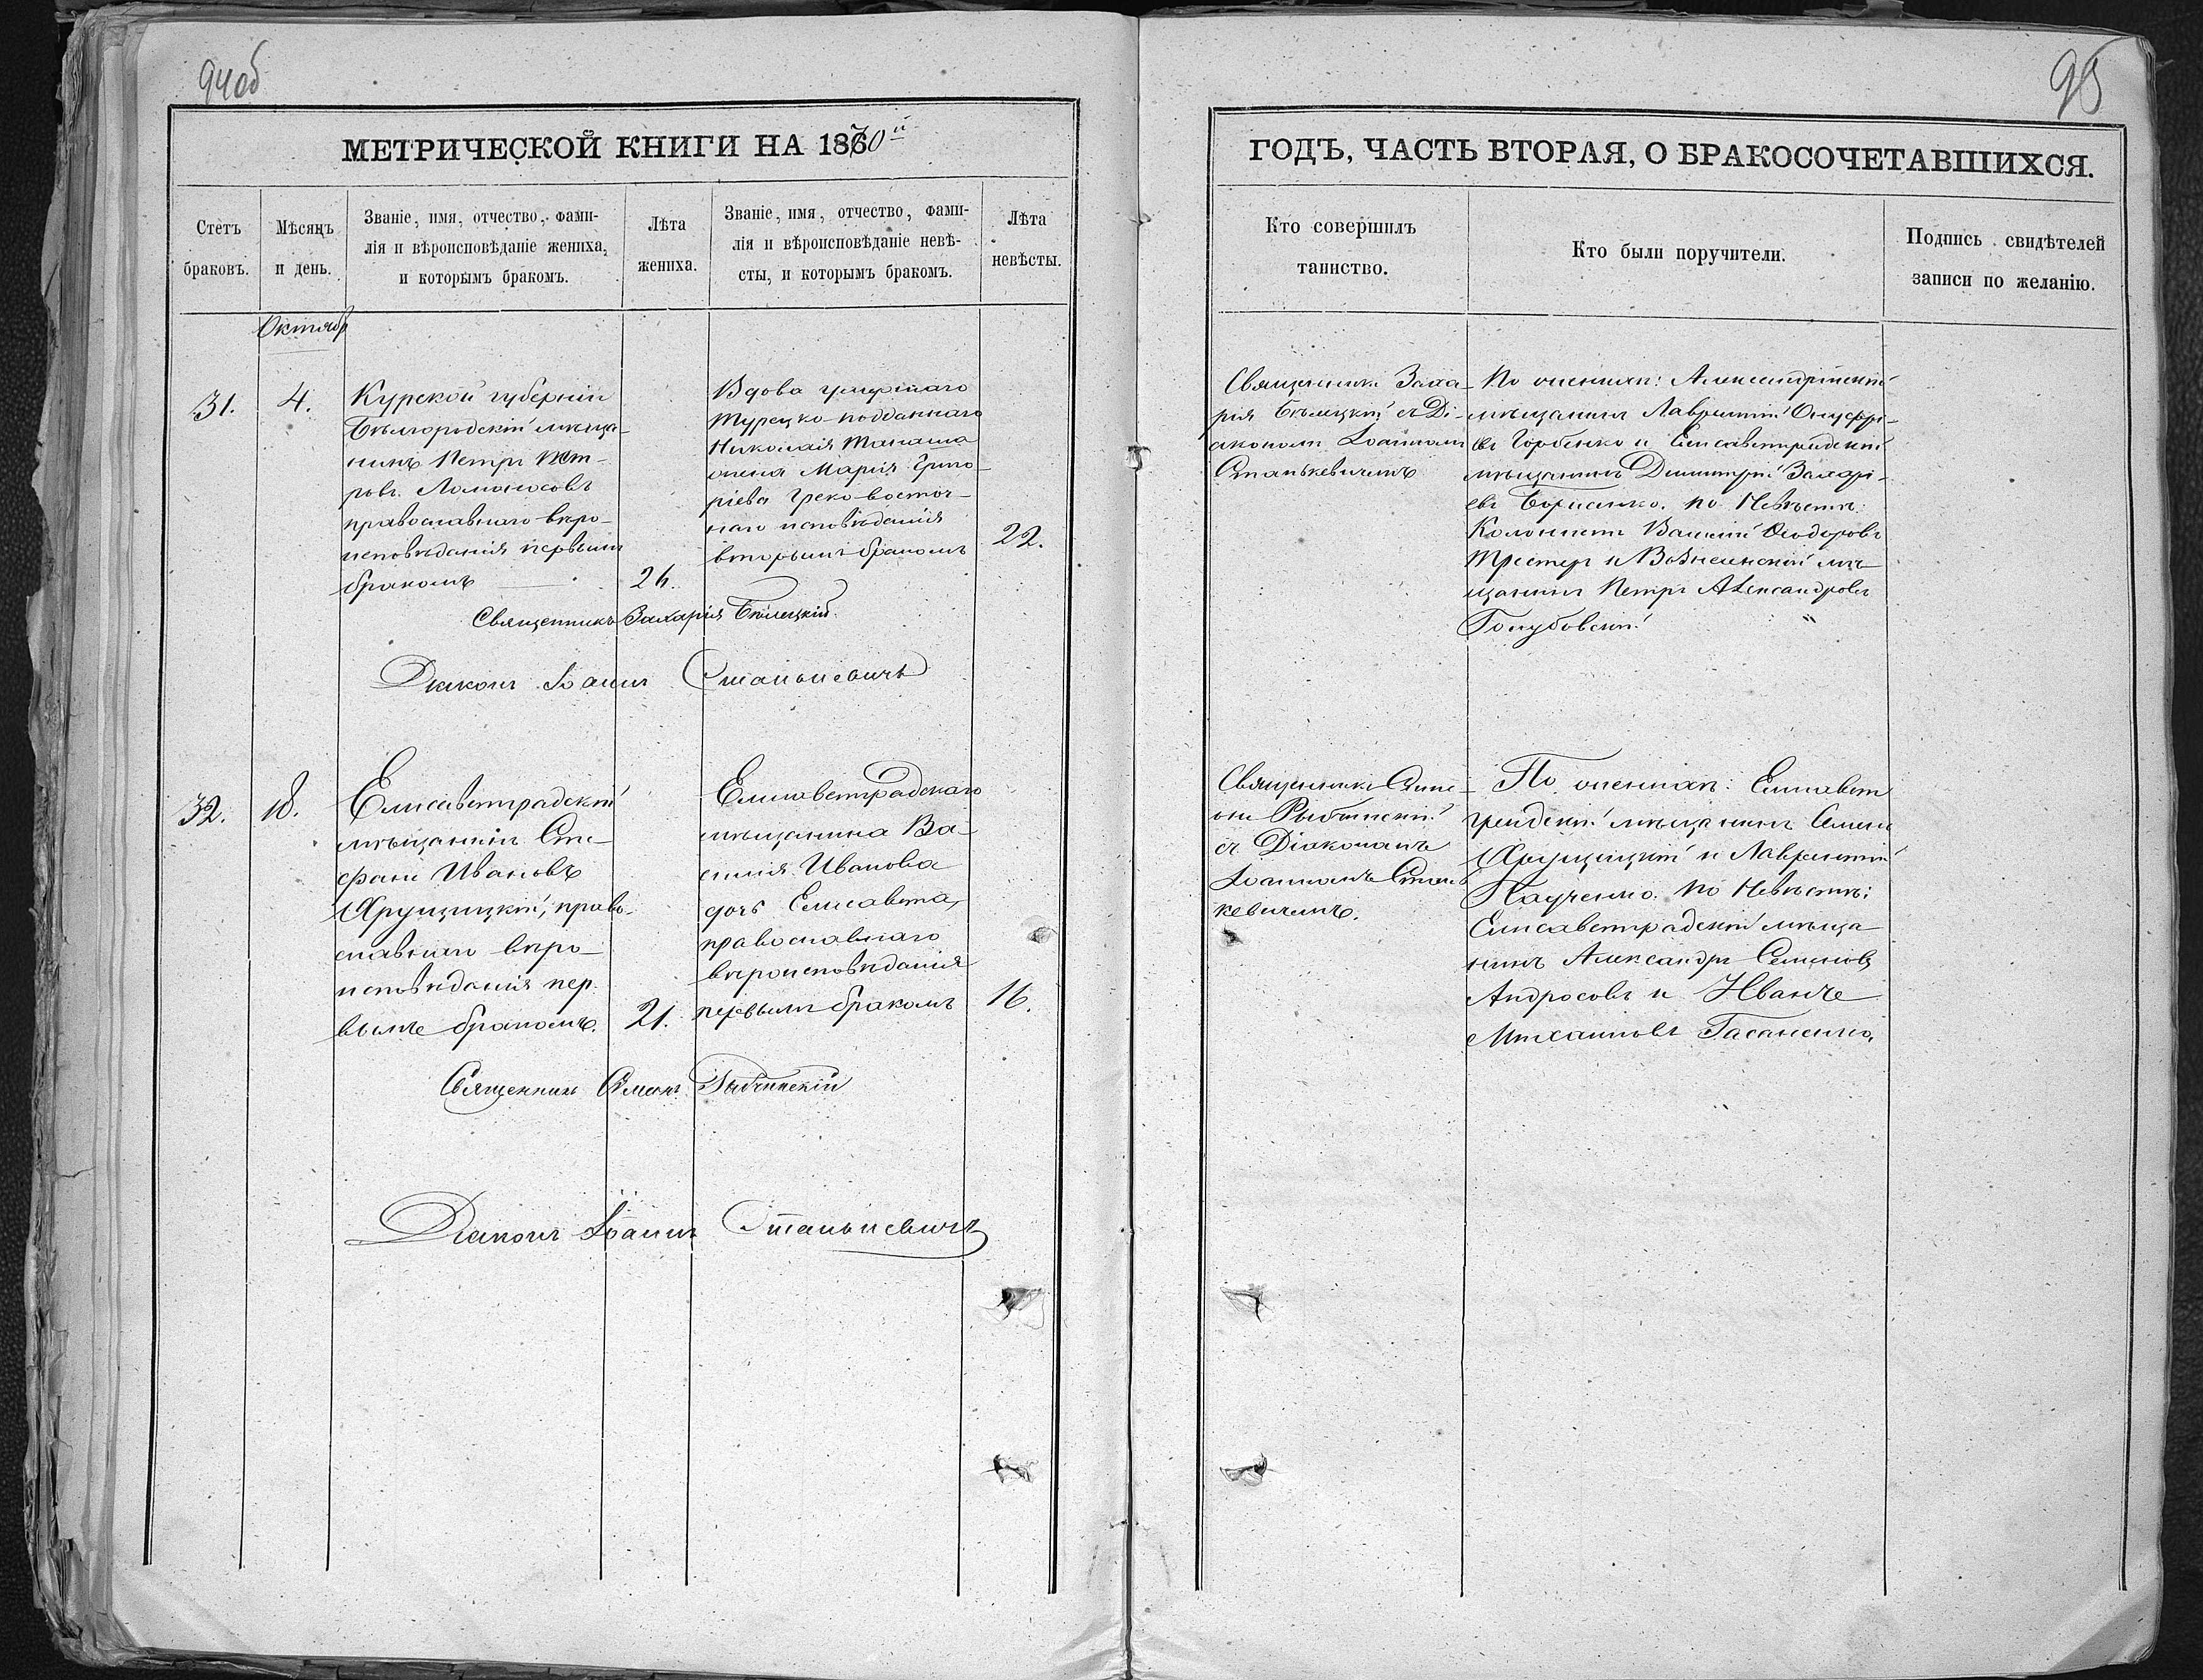 94об
95
МЕТРИЧЕСКОЙ КНИГИ НА 1870й
ГОДЪ, ЧАСТЬ ВТОРАЯ, О БРАКОСОЧЕТАВШИХСЯ.
Счетъ
браковъ.
Мѣсяцъ
и день.
Званіе, имя, отчество, фами-
лія и вѣроисповѣданіе жениха,
и которымъ бракомъ.
Лѣта
жениха.
Званіе, имя, отчество, фами-
лія и вѣроисповѣданіе невѣ-
сты, и которымъ бракомъ.
Лѣта
невѣсты.
Кто совершилъ
таинство.
Кто были поручители.
Подпись свидѣтелей
записи по желанію.
Октябр
31.
4.
Курской губерніи
Бѣлгородскій мѣща-
нинъ Петръ Пет-
ровъ Ломоносовъ
православнаго вѣро-
исповѣданія первымъ
бракомъ
26.
Вдова умершаго
Турецко-подданнаго
Николая
Марія Григо-
ріева Греко-восточ-
наго исповѣданія
вторымъ бракомъ
22.
Священникъ Захарія Бѣлецкій
Діаконъ Іоаннъ Станькевичъ
Священникъ Заха-
рія Бѣлецкій съ Ді-
акономъ Іоанномъ
Станькевичемъ
По женихѣ: Александрійскій
мѣщанинъ Лаврентій Онуфрі-
евъ Горбенко и Елисаветградскій
мѣщанинъ Димитрій Захарі-
евъ Борисенко. По Невѣстѣ:
Колонистъ Василій Ѳеодоровъ
и Вознесенскій мѣ-
щанинъ Петръ Александровъ
Голубовскій
32.
18.
Елисаветградскій
мѣщанинъ Сте-
фанъ Ивановъ
Хрущицкій, право-
славнаго вѣро-
исповѣданія пер-
вымъ бракомъ.
21.
Елисаветградскаго
мѣщанина Ва-
силія Иванова
дочь Елисавета,
православнаго
вѣроисповѣданія
первымъ бракомъ
16.
Священникъ Симеонъ Рыбчинскій
Діаконъ Іоаннъ Станькевичъ
Священникъ Симе-
онъ Рыбчинскій
съ Діакономъ
Іоанномъ Стань
кевичемъ.
По женихѣ: Елисавет
градскій мѣщанинъ Семенъ
Хрущицкій и Лаврентій
По Невѣстѣ:
Елисаветградскій мѣща
нинъ Александръ Семеновъ
Андросовъ и Иванъ
Михаиловъ Гасаненко.